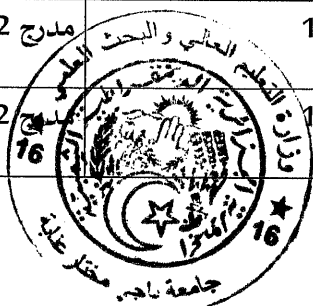 مدرج 2
1
مدرج 2
1
وزارة التعليم العالي و البحث العلمي
الجزائرية الديمقراطية الشعبية
16
16
جامعة باجي مختار عنابة